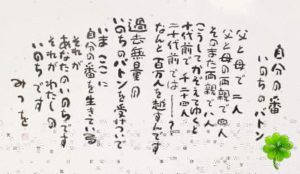 自分の番
いのちのバトン
父と母で二人
父と母の両親で四人
そのまた両親で八人
こうしてかぞえてゆくと
十代前で千二十四人
二十代前では———?
なんと百万人を越すんです
過去無量の
いのちのバトンを受けついで
いまここに
自分の番を生きている
それが
あなたのいのちです
それがわたしの
いのちです
みつを